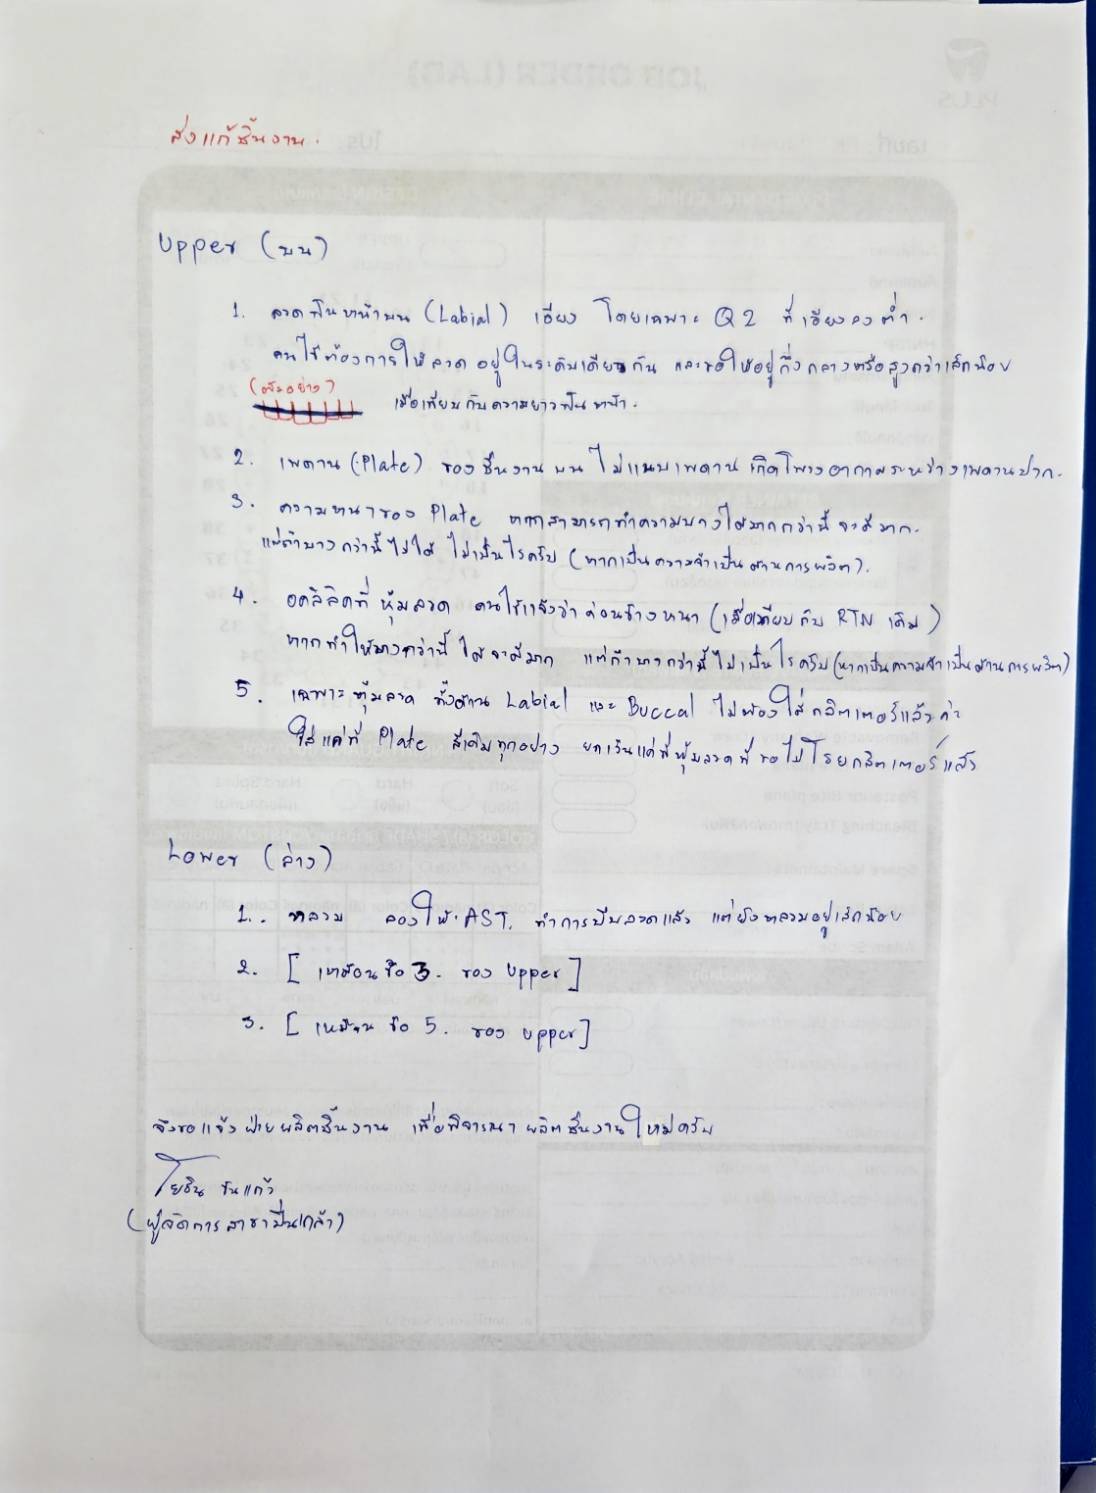 ส่งแก้ชิ้นงาน.
Upper (บน)
1. ลวดฟันหน้าบน (Labial) เอียง โดยเฉพาะ Q2 ที่เอียงลงต่ำ.
คนไข้ต้องการให้ลวดอยู่ในระดับเดียวกัน และขอให้อยู่กึ่งกลางหรือสูงกว่าเล็กน้อย
(ตัวอย่าง) เมื่อเทียบกับความยาวฟันหน้า.
2. เพดาน (Plate) ของชิ้นงานบน ไม่แนบเพดาน เกิดโพรงอากาศระหว่างเพดานปาก.
3. ความหนาของ Plate หากสามารถทำความบางได้มากกว่านี้ จะดีมาก.
แต่ถ้าบางกว่านี้ไม่ได้ ไม่เป็นไรครับ (หากเป็นความจำเป็นด้านการผลิต).
4. อคลิลิคที่หุ้มลวด คนไข้แจ้งว่าค่อนข้างหนา (เมื่อเทียบกับ RTN เดิม)
หากทำให้บางกว่านี้ได้จะดีมาก แต่ถ้าหากกว่านี้ไม่เป็นไรครับ (หากเป็นความจำเป็นด้านการผลิต)
5. เฉพาะหุ้มลวด ทั้งด้าน Labial และ Buccal ไม่ต้องใส่กลิตเตอร์แล้วค่ะ
ใส่แค่ที่ Plate สีเดิมทุกอย่าง ยกเว้นแค่ที่หุ้มลวดที่ขอไม่โรยกลิตเตอร์แล้ว
Lower (ล่าง)
1. หลวม ลองให้ AST. ทำการบีบลวดแล้ว แต่ยังหลวมอยู่เล็กน้อย
2. [ เหมือนข้อ 3. ของ Upper ]
3. [ เหมือนข้อ 5. ของ Upper ]
จึงขอแจ้งฝ่ายผลิตชิ้นงาน เพื่อพิจารณาผลิตชิ้นงานใหม่ครับ
(ผู้จัดการสาขาปิ่นเกล้า)